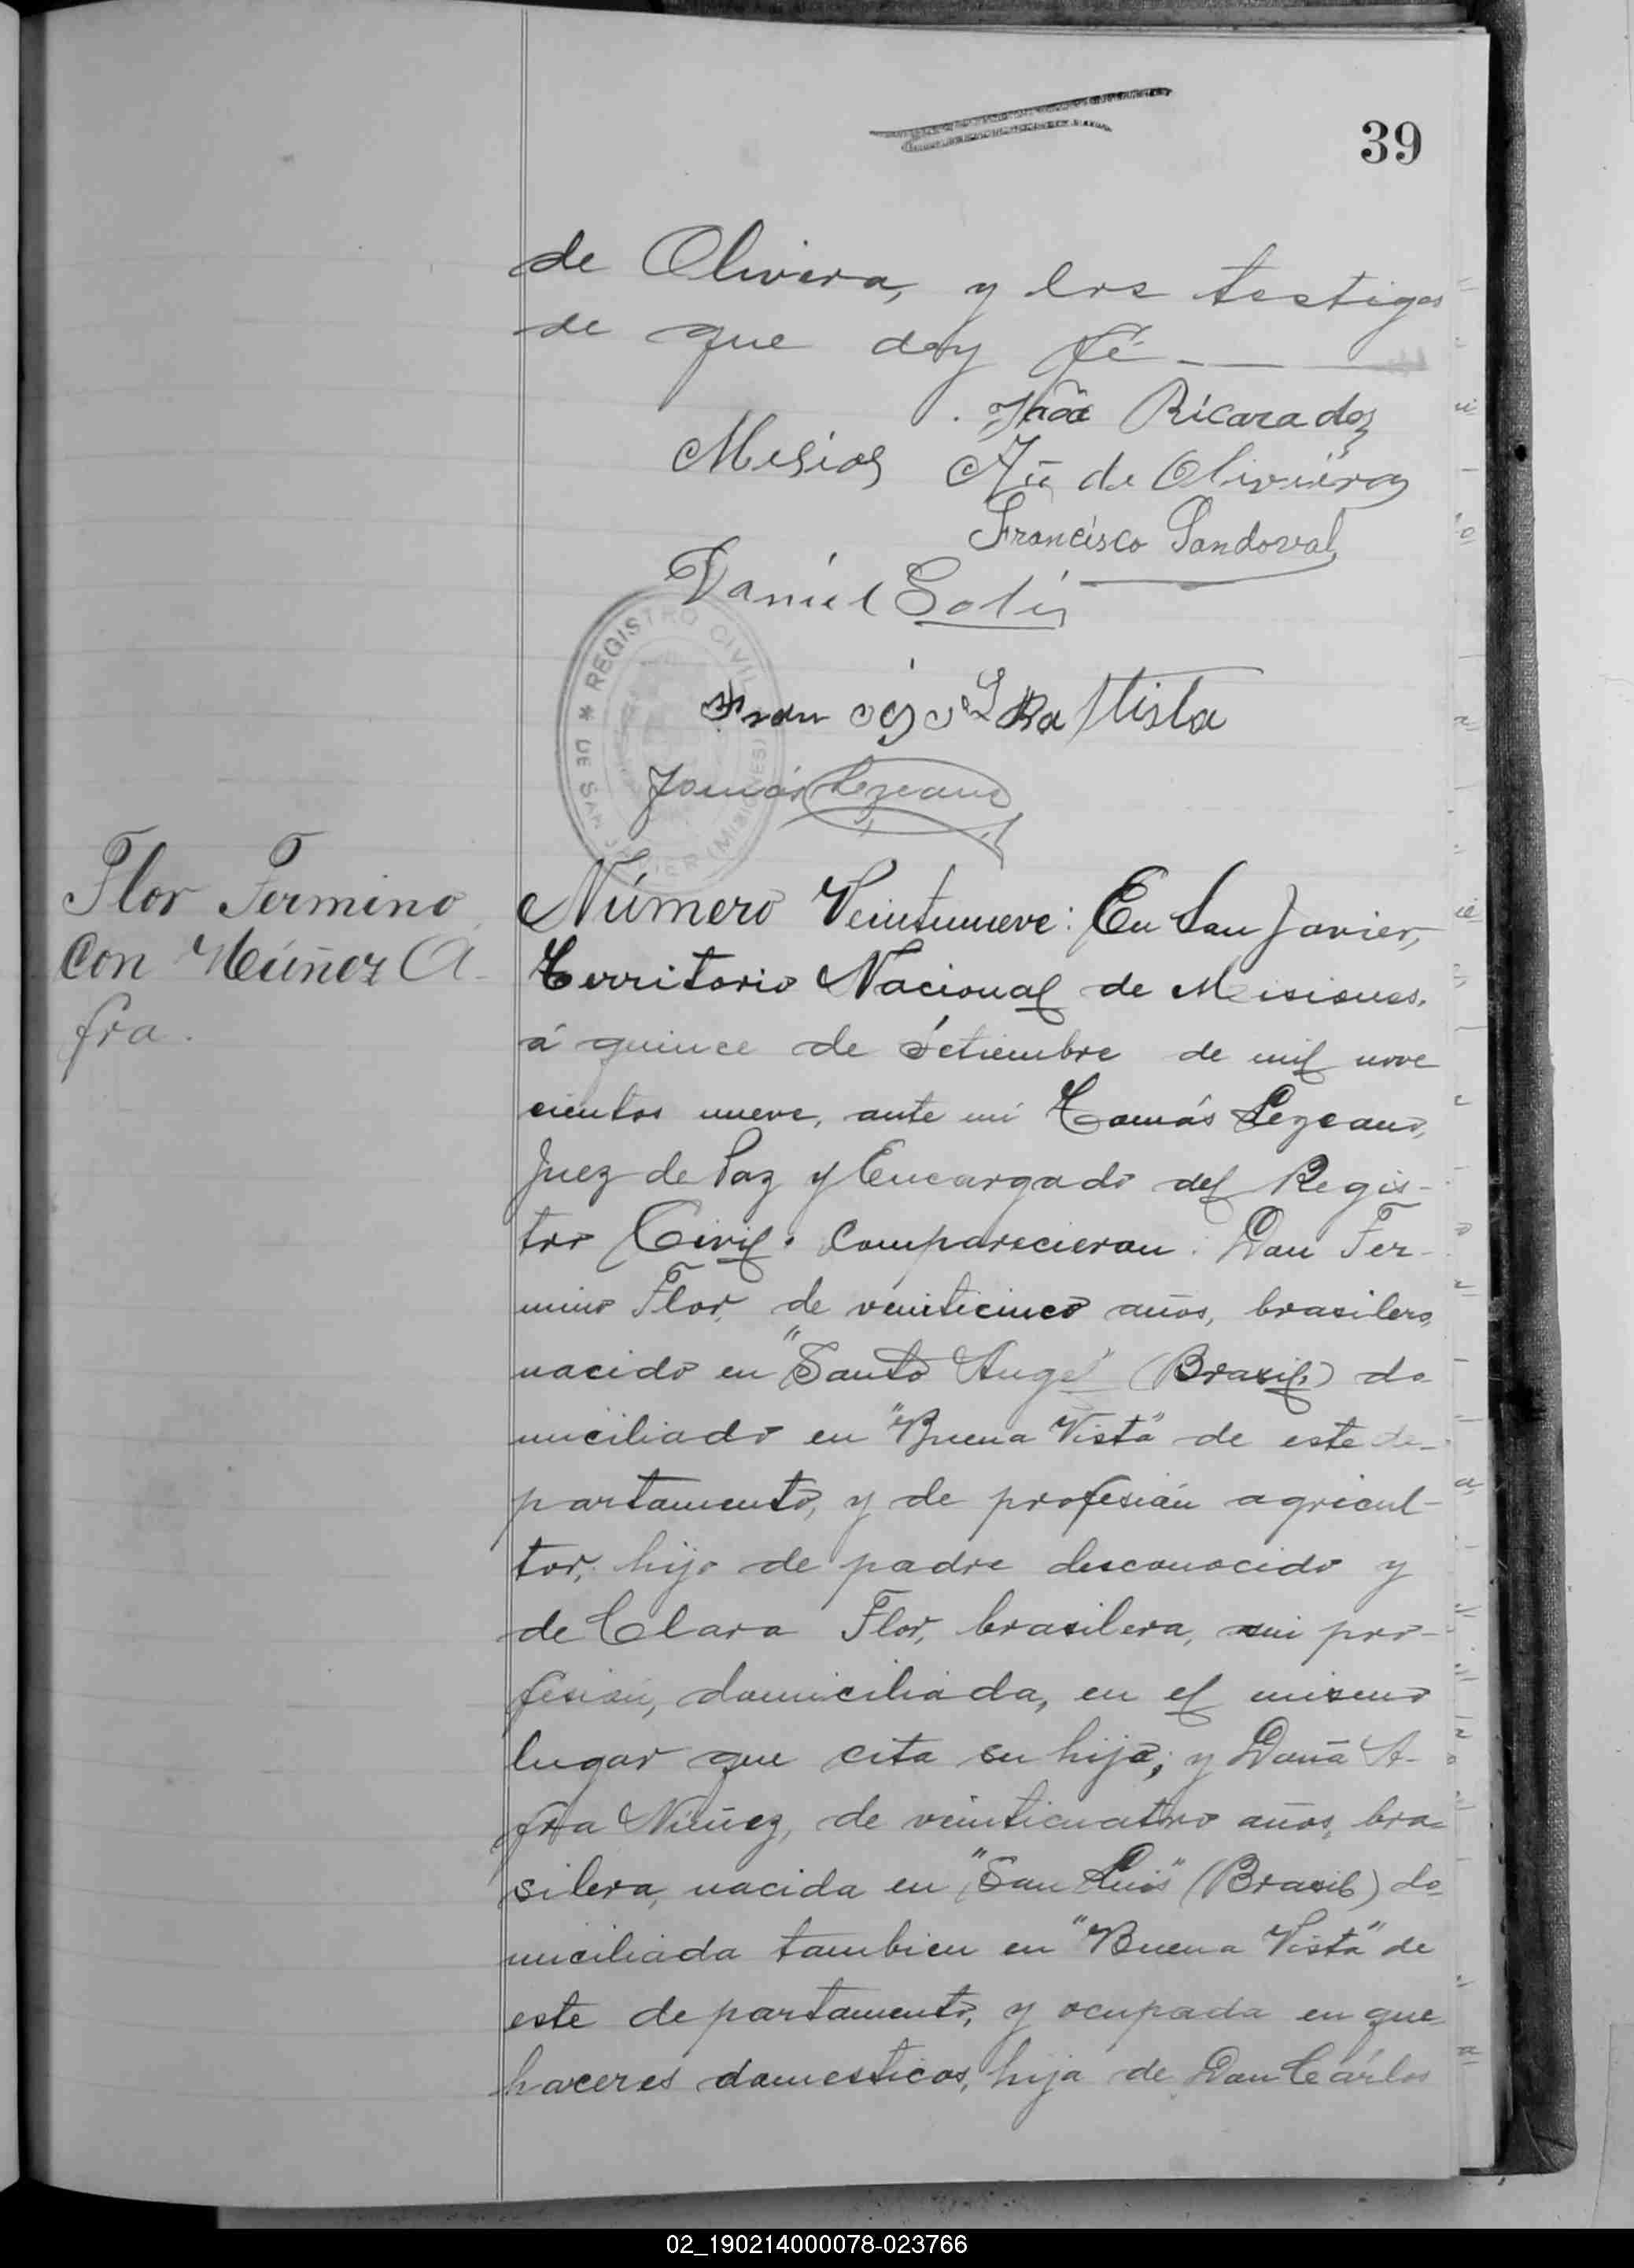 39
de Olivera, y los testigos
de que doy fé
João Ricarado
Mesias Añ de Olivieira
Francisco Sandoval
Daniel Solis
REGISTRO CIVIL
DE SAN JAVIER (MISIONES)
Baptista
Tomás Lezcano
Flor Fermino
con Núñez A-
fra.
Número Veintinueve: En San Javier,
Territorio Nacional de Misiones,
á quince de Setiembre de mil nove
cientos nueve, ante mi Tomás Lezcano,
Juez de Paz y Encargado del Regis-
tro Civil. Comparecieron: Don Fer-
mino Flor, de veinticinco años, brasilero,
nacido en "Santo Angel" (Brasil,) do
miciliado en "Buena Vista" de este de-
partamento, y de profesión agricul-
tor, hijo de padre desconocido y
de Clara Flor, brasilera, sin pro-
fesion, domiciliada, en el mismo
lugar que cita su hijo; y Doña A-
fra Núñez, de veinticuatro años, bra-
silera, nacida en "San Luis" (Brasil) do-
miciliada tambien en "Buena Vista" de
este departamento, y ocupada en que-
haceres domesticos, hija de Don Cárlos
02_190214000078-023766